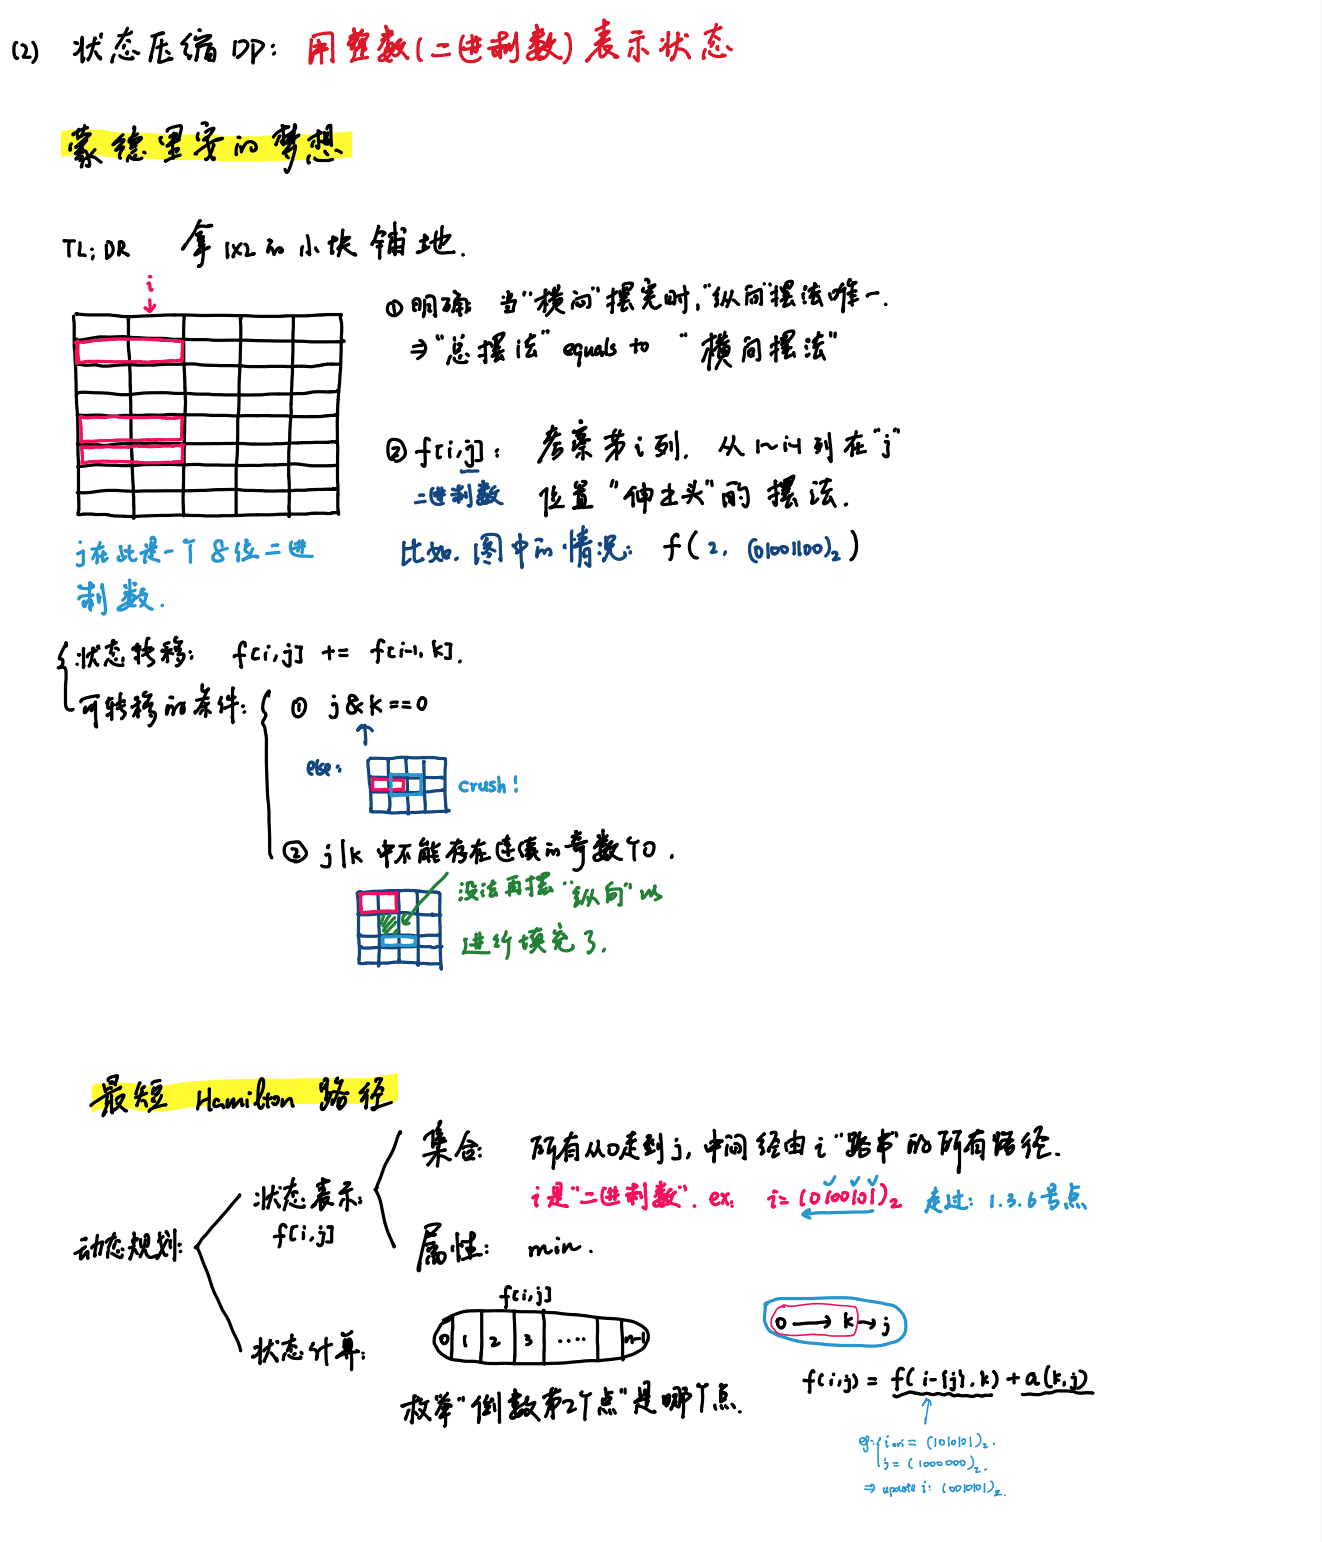 (2) 状态压缩DP: 用整数(二进制数)表示状态
蒙德里安的梦想
TL;DR 拿1x2的小块铺地.
i
① 明确: 当"横向"摆完时,"纵向"摆法唯一.
⇒"总摆法" equals to "横向摆法"
② f[i,j]: 考察第i列. 从1~i-1列在"j"
二进制数 位置"伸出头"的摆法.
比如. 图中的情况: f(2, (01001100)₂)
j在此是一个8位二进
制数.
状态转移: f[i,j] += f[i-1,k].
可转移的条件: ① j&k==0
else:
crush!
② j|k 中不能存在连续的奇数个0.
没法再摆"纵向"以
进行填充了.
最短 Hamilton 路径
集合: 所有从0走到j, 中间经由i"路书"的所有路径.
i是"二进制数". ex: i=(0100101)₂ 走过: 1.3.6号点
状态表示:
f[i,j]
动态规划:
属性: min.
f[i,j]
0 1 2 3 .... n-1
0 → k → j
状态计算:
f(i,j) = f(i-{j},k)+a(k,j)
枚举"倒数第2个点"是哪个点.
eg: i_ori = (1010101)₂.
j = (1000000)₂.
⇒ update i: (0010101)₂.